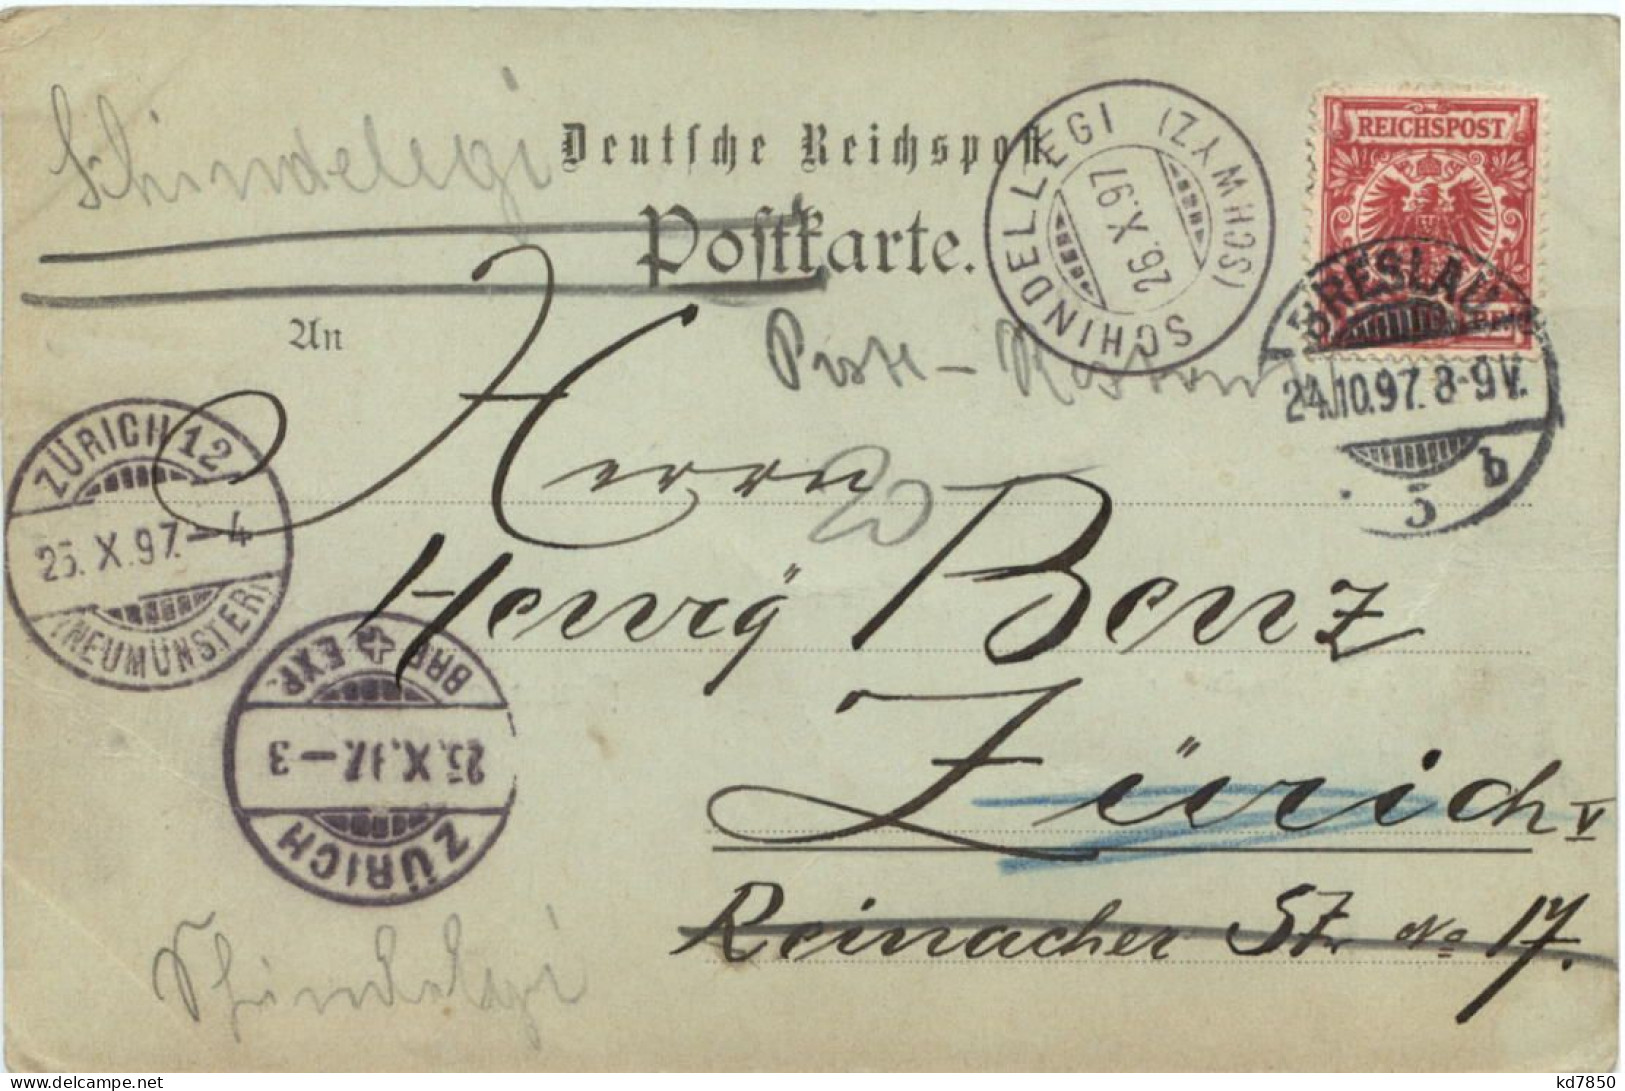 Schindelegi
Deutsche Reichspost
Postkarte.
SCHINDELLEGI (SCHWYZ)
26.X.97
REICHSPOST
BRESLAU
24.10.97. 8-9V.
5 b
An
Poste-Restante
ZÜRICH 12
25.X.97.-4
(NEUMÜNSTER)
Herrn
Henry Benz
BRF. EXP.
25.X.97.-3
ZÜRICH
Zürich V
Reinacher Str. No 17.
Schindelegi
delcampe.net
kd7850